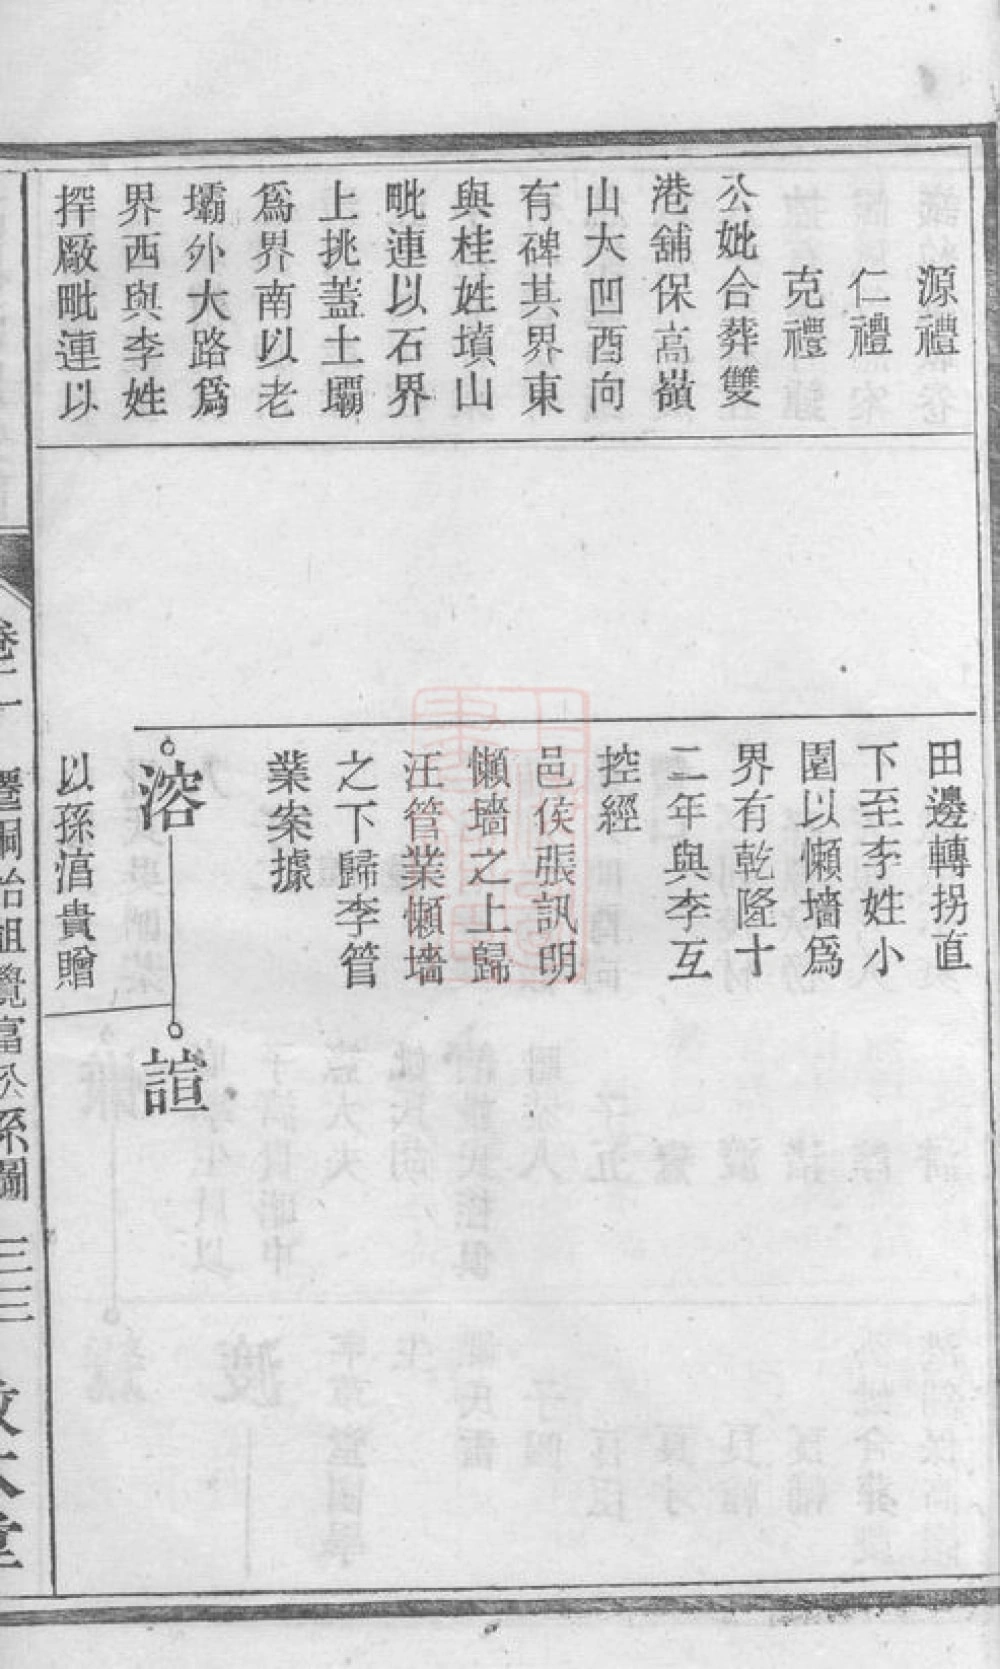 源禮
仁禮
克禮
公妣合葬雙
港舖保高嶺
山大凹酉向
有碑其界東
與桂姓墳山
毗連以石界
上挑蓋土壩
爲界南以老
壩外大路爲
界西與李姓
撂廠毗連以
田邊轉拐直
下至李姓小
園以懶墻爲
界有乾隆十
二年與李互
控經
邑侯張訊明
懶墻之上歸
汪管業懶墻
之下歸李管
業案據
溶
諠
以孫湻貴贈
卷二
遷桐始祖覺富公系圖
三三
敦本堂